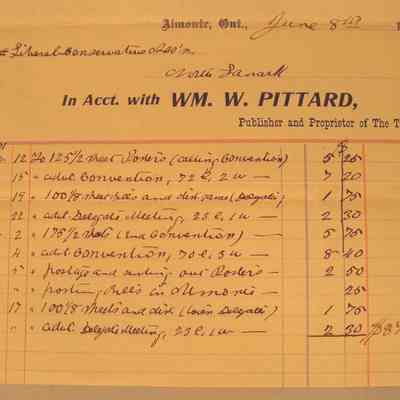 Almonte, Ont., June 8th 1
Liberal Conservative Ass'n.
North Lanark
In Acct. with WM. W. PITTARD,
Publisher and Proprietor of The T
12 To 125 1/2 sheet Posters (calling Convention) 5 25
15 " advt Convention, 72 l, 2 w — 7 20
19 " 100 1/8 sheet bills and dist. same (Delegate) 1 75
22 " advt. Delegate Meeting, 23 l, 1 w — 2 30
2 " 175 1/2 sheets (2nd Convention) — 5 75
4 " advt Convention, 70 l, 3 w — 8 40
5 " postage and sending out Posters — 2 50
" " posting Bills in Almonte — 25
17 " 100 1/8 sheets and dist (town Delegate) 1 75
" " advt. Delegate Meeting, 23 l, 1 w — 2 30